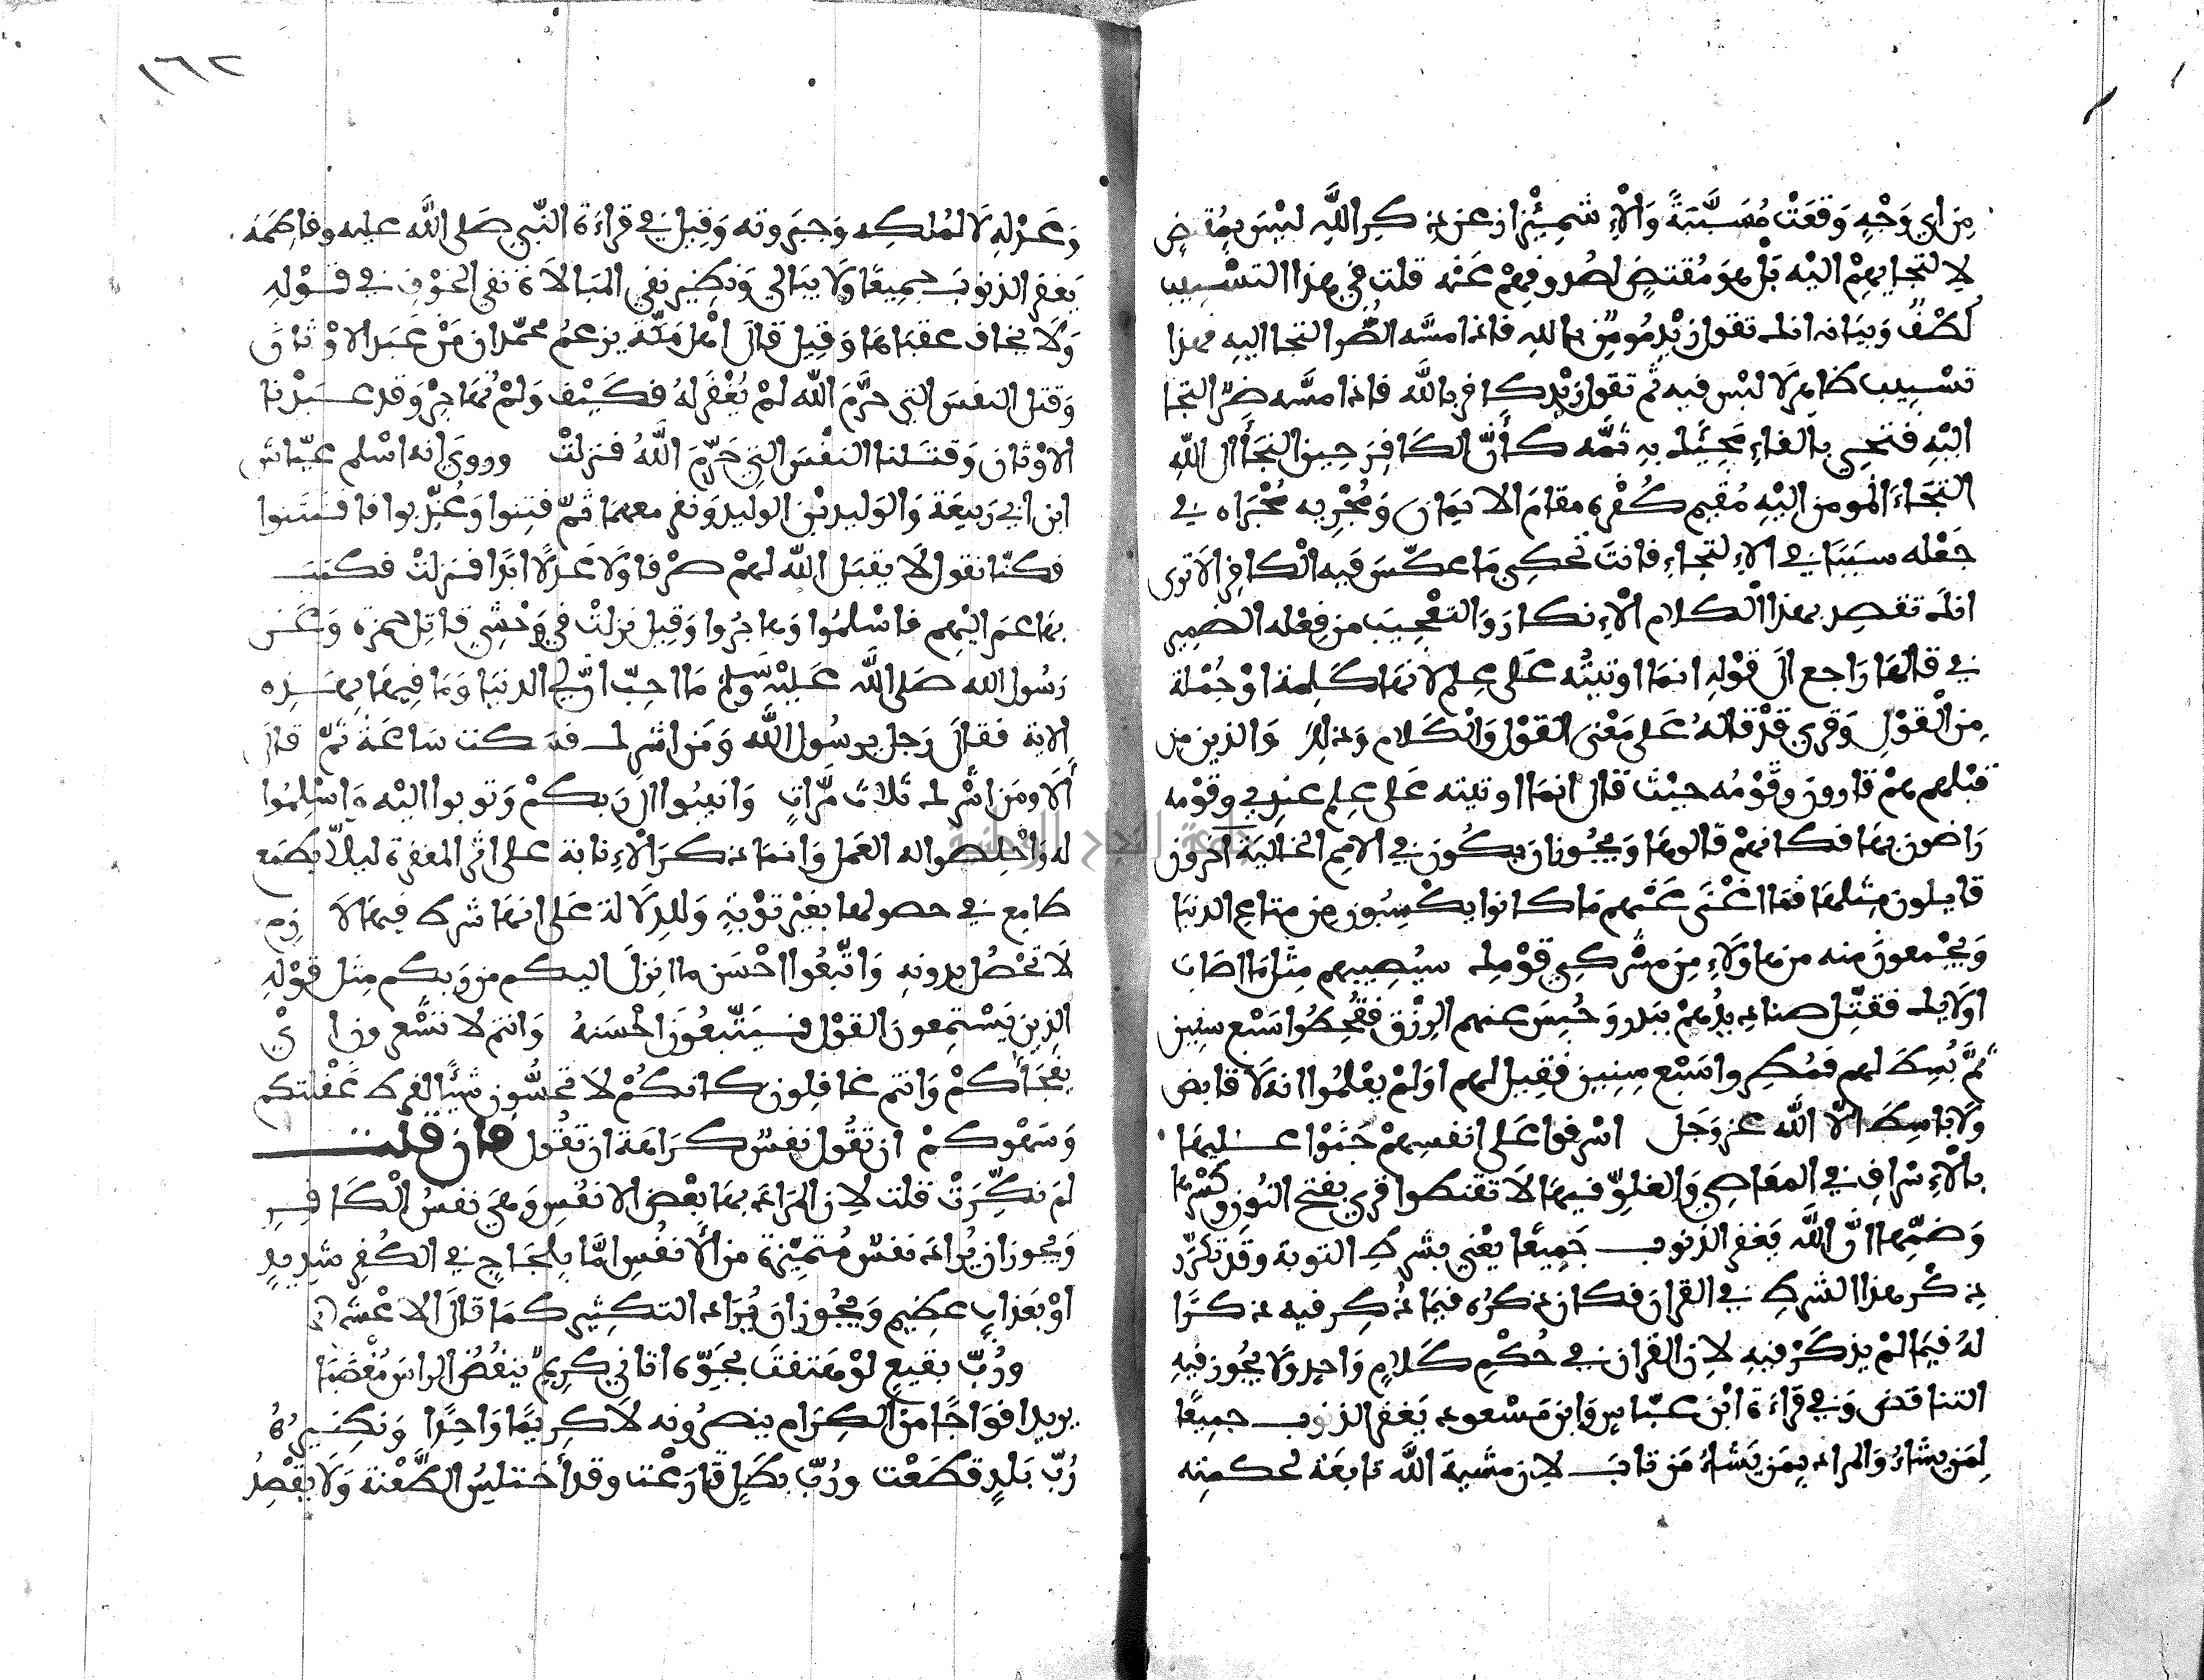 من اي وَجْهٍ وَقعَتْ مُسَبَّبَةً وَالْاِشمِئْزاز عن ذِكرِ اللَّهِ ليْسَ بِمُقتضٍ
لِالتجايهِمْ اليْه بَلْ هوَ مُقتضٍ لصُدوفِهِمْ عَنْه قلت في هذا التسْبيب
لُطْفٌ وَبيَانه انك تقول زيْد مُومِنٌ بالله فاذا مسَّه الضُّر التجا اليه فهذا
تسْبيب ظاهِرٌ لا لبْس فيه ثم تقول زيْد كافر بالله فاذا مسَّه ضرٌّ التجا
اليْهِ فتجي بالفاءِ مَجِيَّك بهِ ثَمَّه كأَنَّ الكَافِرَ حِين التجَأَ الى اللَّهِ
التجَاءَ المُومن اليْهِ مُقيم كُفْرهُ مقامَ الايمَان وَمُجْرِيه مُجْرَاه في
جَعْله سبَبَا في الاِلتجَاءِ فانتَ تحكِي مَا عكّسَ فيه الْكافِر الا ترى
انكَ تقصِد بهذا الْكلام الْاِنكارَ وَالتعْجِيبَ من فِعْله الضمير
في قالهَا رَاجع الَى قوْلِهِ انمَا اوتيتُه عَلى عِلمٍ لانهَا كَلِمة اوْ جُمْلة
مِن الْقوْلِ وَقري قدْ قالهُ عَلى مَعْنى القوْل وَالْكَلام وَذلِكَ وَالذين من
قبْلهِم همْ قارون وَقوْمُه حيْث قال انمَا اوتيته عَلى عِلم عنِدي وقوْمه
رَاضون بهَا فكانهمْ قالوهَا وَيجُوز ان يكُون في الامم الخاليَة آخرون
قايلون مِثلهَا فمَا اغْنَى عَنْهم مَا كانوا يكْسِبُون مِن متاع الدنيَا
وَيجْمعونَ منه من هاوْلَاءِ مِنَ مشْركِي قوْمِك سيُصِيبهم مِثل مَا اصَابَ
اولَايك فقتِّل صناديدُهمْ ببَدر وَحُبِسَ عنهم الرِزْق فقُحِطُوا سَبْع سِنين
ثمَّ بُسِطَ لهم فمُطِروا سَبْع سِنِين فقيل لهم اوَلمْ يعْلمُوا انه لَا قابض
وَلَا باسِطَ الّا اللَّه عز وَجَل اسْرفوا عَلى انفسِهِمْ جَنَوْا عليهَا
بالْاِسْرافِ في المعَاصِي وَالغلِوّ فيهَا لَا تقنطوا قري بفتح النون وكسْرها
وَضمّها انَّ اللَّه يَغفر الذنوب جَمِيعًا يعْني بشرط التوبة وقد تكرّر
ذِكْر هذا الشرطِ في القران فكان ذكرُه فيمَا ذُكِر فيه ذكرًا
لهُ فيمَا لمْ يذكَرْ فيهِ لان القُران في حُكْمِ كَلامٍ وَاحِدٍ وَلا يجُوز فيهِ
التناقض وَفي قرَاءَة ابْن عبّاسٍ وَابن مَسْعود يَغفر الذنوب جمِيعًا
لِمَن يشَاءُ وَالمراد بِمَن يَشَاءُ مَن تابَ لان مشيةَ اللَّه تابعَة لحكمتِه
وَعَدْلِهِ لَا لمُلكِه وَجبرَوته وَقيل في قراءَة النّبي صَلى اللَّه عليه وفاطمَة
يَغفر الذنوبَ جمِيعًا وَلَا يبَالي وَنظِير نفي المبَالَاة نفي الخوْف في قوْلهِ
وَلَا يخاف عقبَاهَا وَقِيل قالَ اهْل مَكّة يزعمُ محمّد ان مَنْ عَبَد الاوْثان
وَقتل النفسَ التي حرَّمَ اللَّه لمْ يُغْفَر لهُ فكَيْف وَلمْ نُهَاجِرْ وَقد عبَدْنا
الاوْثان وَقتَلنا النفْسَ التي حَرَّمَ اللَّهُ فنزلتْ وروِيَ انه اسْلم عيّاش
ابن ابي رَبيعَة وَالوَليد بْن الوليد وَنفر معهمَا ثمّ فتِنوا وَعُذّبوا فافتتنوا
فكنّا نقول لَا يقبَل اللَّه لهمْ صرْفا وَلَا عَدْلًا ابدًا فنزلتْ فكتبَ
بهَا عمَر اليْهم فاسْلمُوا وَهاجرُوا وَقِيل نزلتْ في وَحْشِي قاتِل حمزة وَعَن
رَسُول الله صَلى اللَّه عَليْه وَسَلم مَا احِبّ انّ لي الدنيَا وَمَا فِيهَا بهَذِه
الاية فقالَ رَجل يرسُول اللَّه وَمَن اشرك فسَكت سَاعَة ثمّ قالَ
أَلَا وَمَن اشْرك ثلاث مَّراتٍ وَانيبُوا الى رَبكمْ وَتوبوا اليْه وَاسْلِمُوا
له وَاخْلِصوا له العَمل وَانمَا ذكرَ الْاِنابة على اثر المغفرة ليلّا يطمَع
طامِع في حصولها بغيْر توْبَةٍ وَللدِلَالة عَلى انهَا شرط فيهَا لَازِم
لَا تحْصُل بدونهِ وَاتَّبعُوا احْسَن ما انزلَ اليكم من رَبكم مِثل قوْلهِ
الذِين يَسْتمِعون القوْل فيَتّبعُونَ احْسَنهُ وَانتم لا تشْعرون ايْ
يفجَأُكمْ وَانتم غافِلون كانكُمْ لَا تحسُّون شيْئًا لفرط غفْلتكم
وَسَهْوكمْ ان تقُول نفسٌ كرَاهة ان تقُول فان قلت
لمَ نكِّرَتْ قلت لان المرَاد بهَا بعْض الانفُس وَهيَ نفسُ الْكَافِر
وَيجوز ان يُراد نفسٌ مُتميّزة من الأَنفُس امَّا بلِجَاجٍ في الكُفر شديدٍ
اوْ بعَذابٍ عظيم وَيجُوز ان يُرَاد التكثير كمَا قالَ الاعْشى
ورُبّ بقيعٍ لوْ هَتفتُ بجَوّه اتاني كرِيمٌ ينفُضُ الراسَ مُغْضَبَا
يريد افوَاجًا منَ الكِرَام ينصرُونه لَا كريمًا وَاحِدًا وَنظيرُهُ
رُبّ بَلدٍ قطَعْت ورُبّ بطَلٍ قارَعْت وقد أخْتلِسُ الطَّعْنة وَلَا يقصِدُ